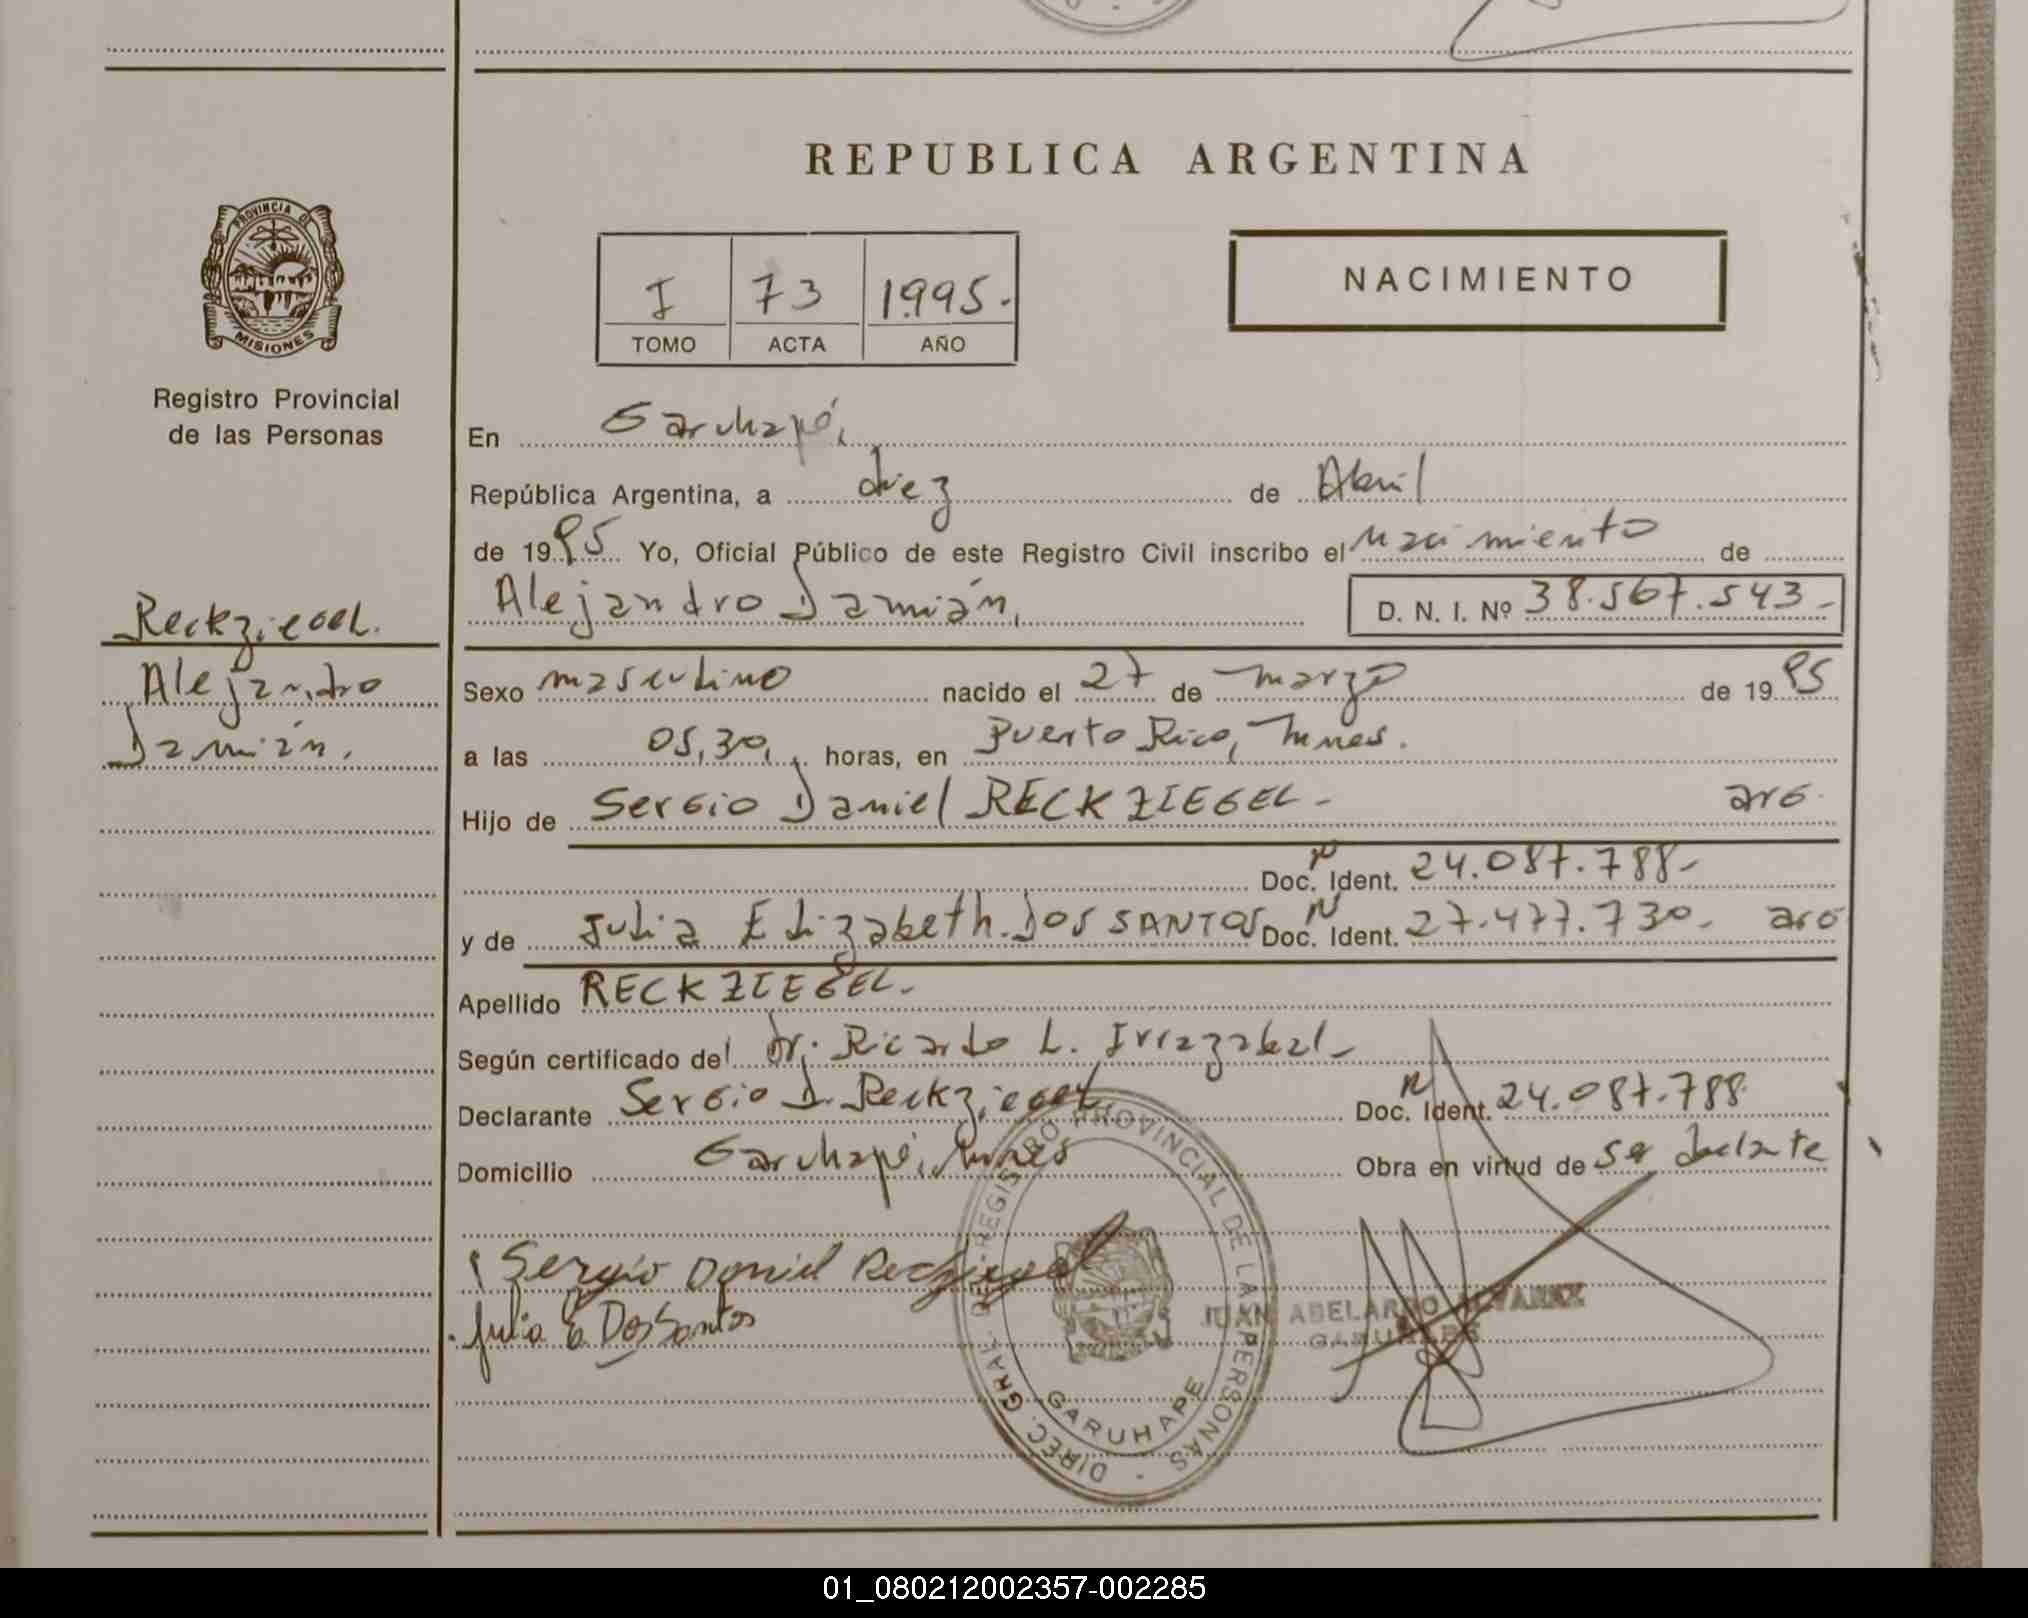 REPUBLICA ARGENTINA
PROVINCIA DE
MISIONES
Registro Provincial
de las Personas
I 73 1995.
TOMO ACTA AÑO
NACIMIENTO
En Garuhapé,
República Argentina, a diez de Abril
de 1995 Yo, Oficial Público de este Registro Civil inscribo el nacimiento de
Alejandro Damián, D. N. I. Nº 38.567.543-
Reckziegel.
Alejandro
Damián.
Sexo masculino nacido el 27 de marzo de 1995
a las 05,30, horas, en Puerto Rico, Mnes.
Hijo de Sergio Daniel RECKZIEGEL - arg.
Doc. Ident. 24.087.788-
y de Julia Elizabeth DOS SANTOS Doc. Ident. 27.477.730- arg
Apellido RECKZIEGEL.
Según certificado del Dr. Ricardo L. Irrazabal-
Declarante Sergio D. Reckziegel Doc. Ident. 24.087.788
Domicilio Garuhapé, Mnes Obra en virtud de ser declarante
Sergio Daniel Reckziegel
Julia E. Dos Santos
JUAN ABELARDO ALVAREZ
GARUHAPE
DIREC. GRAL. DEL REGISTRO PROVINCIAL DE LAS PERSONAS
GARUHAPE
01_080212002357-002285